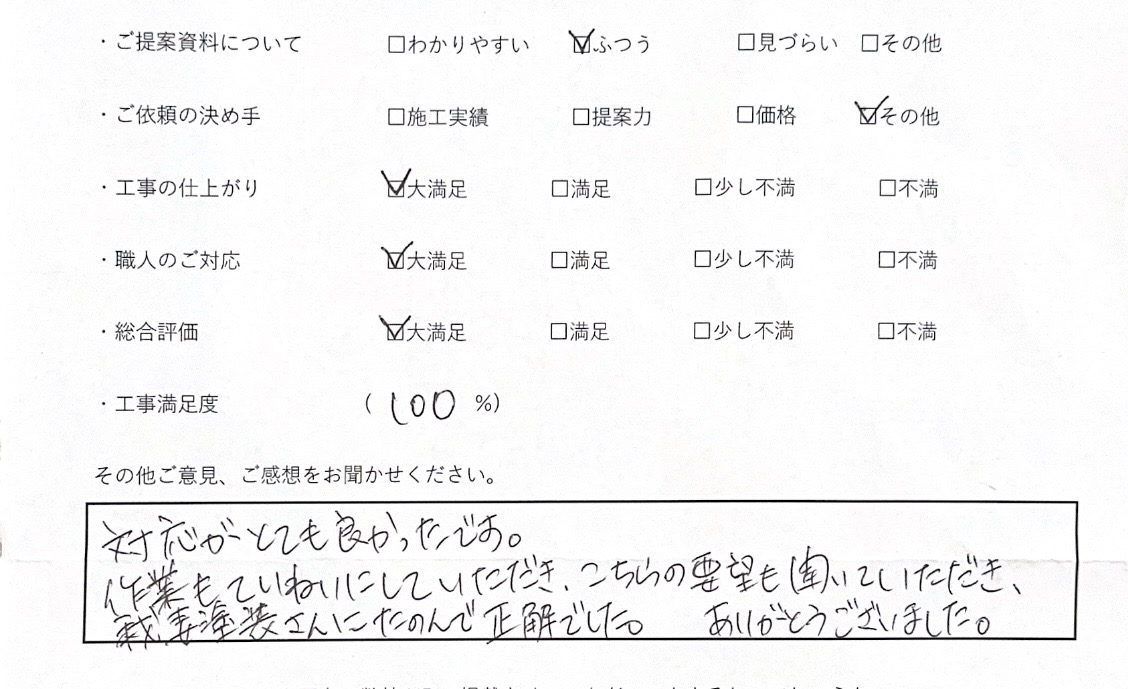 ・ご提案資料について □わかりやすい ☑ふつう □見づらい □その他
・ご依頼の決め手 □施工実績 □提案力 □価格 ☑その他
・工事の仕上がり ☑大満足 □満足 □少し不満 □不満
・職人のご対応 ☑大満足 □満足 □少し不満 □不満
・総合評価 ☑大満足 □満足 □少し不満 □不満
・工事満足度 ( 100 %)
その他ご意見、ご感想をお聞かせください。
対応がとても良かったです。
作業もていねいにしていただき、こちらの要望も聞いていただき、
塗装さんにたのんで正解でした。 ありがとうございました。